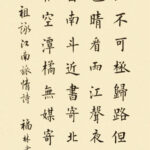 不可極歸路但
色晴看雨江聲夜
南斗近書寄北
空潭橘無媒寄
祖詠江南旅情詩 福林